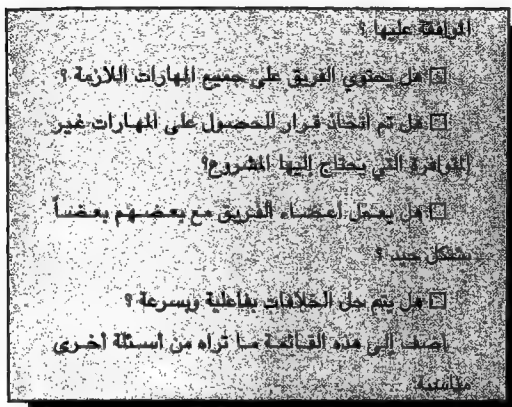 الموافقة عليها ؟
□ هل يحتوي الفريق على جميع المهارات اللازمة ؟
□ هل تم اتخاذ قرار للحصول على المهارات غير
المتوافرة التي يحتاج إليها المشروع؟
□ هل يعمل أعضاء الفريق مع بعضهم بعضاً
بشكل جيد ؟
□ هل يتم حل الخلافات بفاعلية وبسرعة ؟
أضف إلى هذه القائمة ما تراه من أسئلة أخرى
مناسبة .